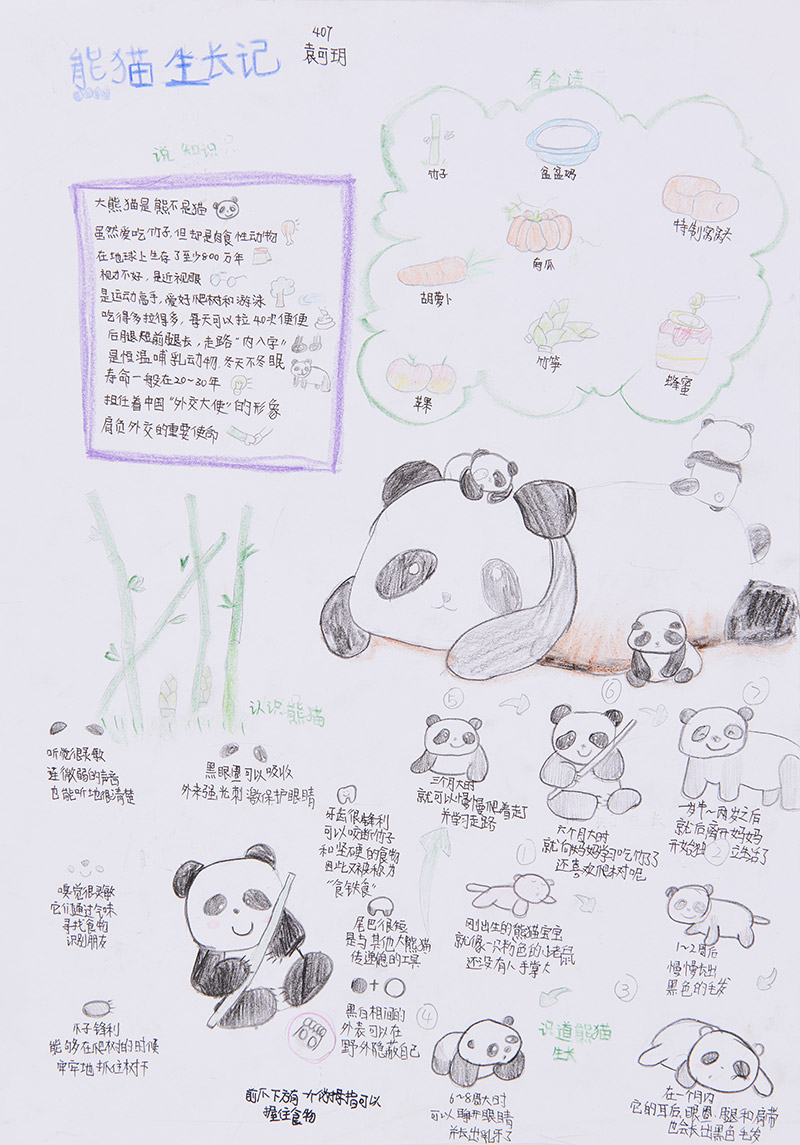 熊猫生长记
407
袁可玥
说知识
大熊猫是熊不是猫
虽然爱吃竹子,但却是肉食性动物
在地球上生存了至少800万年
视力不好,是近视眼
是运动高手,爱好爬树和游泳
吃得多拉得多,每天可以拉40次便便
后腿短前腿长,走路“内八字”
是恒温哺乳动物,冬天不冬眠
寿命一般在20~30年
担任着中国“外交大使”的形象
肩负外交的重要使命
看食谱
竹子
盆盆奶
特制窝窝头
南瓜
胡萝卜
竹笋
苹果
蜂蜜
认识熊猫
听觉很灵敏
连微弱的声音
也能听地很清楚
黑眼圈可以吸收
外来强光刺激保护眼睛
牙齿很锋利
可以咬断竹子
和坚硬的食物
因此又被称为
“食铁兽”
嗅觉很灵敏
它们通过气味
寻找食物
识别朋友
尾巴很短
是与其他大熊猫
传递信的工具
黑白相间的
外表可以在
野外隐蔽自己
爪子锋利
能够在爬树的时候
牢牢地抓住树干
前爪下方有一个伪拇指可以
握住食物
识道熊猫
生长
①
刚出生的熊猫宝宝
就像一只粉色的小老鼠
还没有人手掌大
②
1~2周后
慢慢长出
黑色的毛发
③
在一个月内
它的耳后,眼圈,腿和肩带
也会长出黑色毛发
④
6~8周大时
可以睁开眼睛
并长出乳牙了
⑤
三个月大时
就可以慢慢爬着走了
并学习走路
⑥
六个月大时
就向妈妈学习吃竹子了
还喜欢爬树呢
⑦
一岁半~两岁之后
就后离开妈妈
开始独立生活了